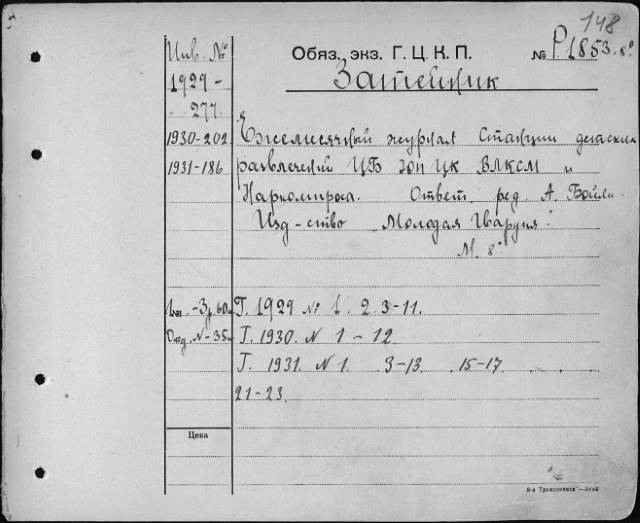 148
Инв. №
Обяз. экз. Г. Ц. К. П.
№ Р1853.8°
Затейник
1929-
277
1930-202
1931-186
Ежемесячный журнал Станции детских
развлечений ЦБ ЮП ЦК ВЛКСМ и
Наркомпроса. Ответ. ред. А. Бойм.
Изд-ство "Молодая Гвардия".
М. 8°
Г. 1929 № 1. 2. 3-11.
Отд. № -35к
Г. 1930. N 1-12.
Г. 1931. N 1. 3-13. 15-17
21-23.
Цена